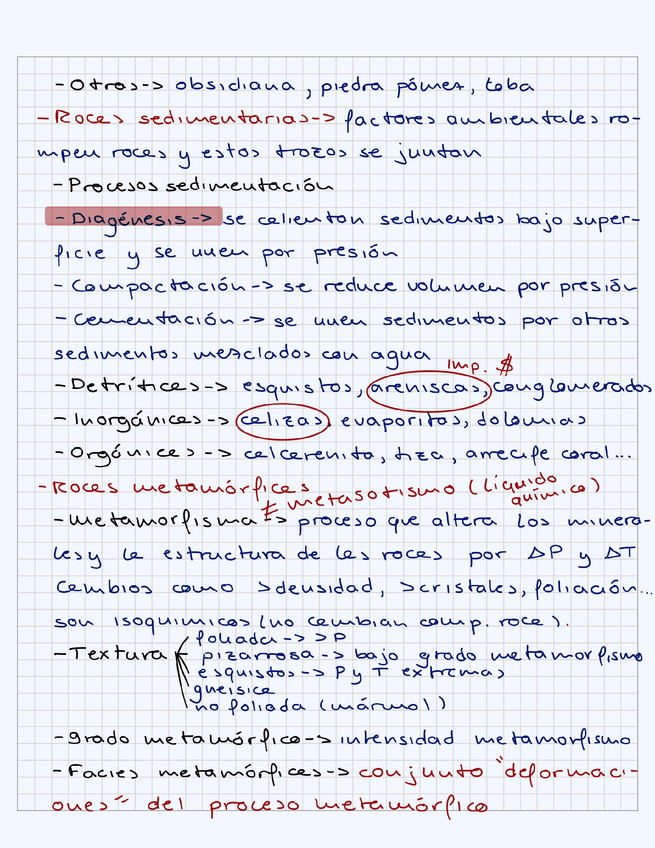 - Otras -> obsidiana, piedra pómez, toba
- Rocas sedimentarias -> factores ambientales ro-
mpen rocas y estos trozos se juntan
- Procesos sedimentación
- Diagénesis -> se calientan sedimentos bajo super-
ficie y se unen por presión
- Compactación -> se reduce volumen por presión
- Cementación -> se unen sedimentos por otros
sedimentos mezclados con agua
Imp. $
- Detríticas -> esquistos, areniscas, conglomerados
- Inorgánicas -> calizas, evaporitas, dolomias
- Orgánicas -> calcarenita, tiza, arrecife coral...
- Rocas metamórficas
≠ metasotismo (líquido
químico)
- Metamorfismo -> proceso que altera los minera-
les y la estructura de las rocas por ΔP y ΔT
Cambios como >densidad, >cristales, foliación...
son isoquimicos (no cambian comp. roca).
foliada -> >P
- Textura pizarrosa -> bajo grado metamorfismo
esquistos -> P y T extremas
gneisica
no foliada (mármol)
- Grado metamórfico -> intensidad metamorfismo
- Facies metamórficas -> conjunto "deformaci-
ones" del proceso metamórfico